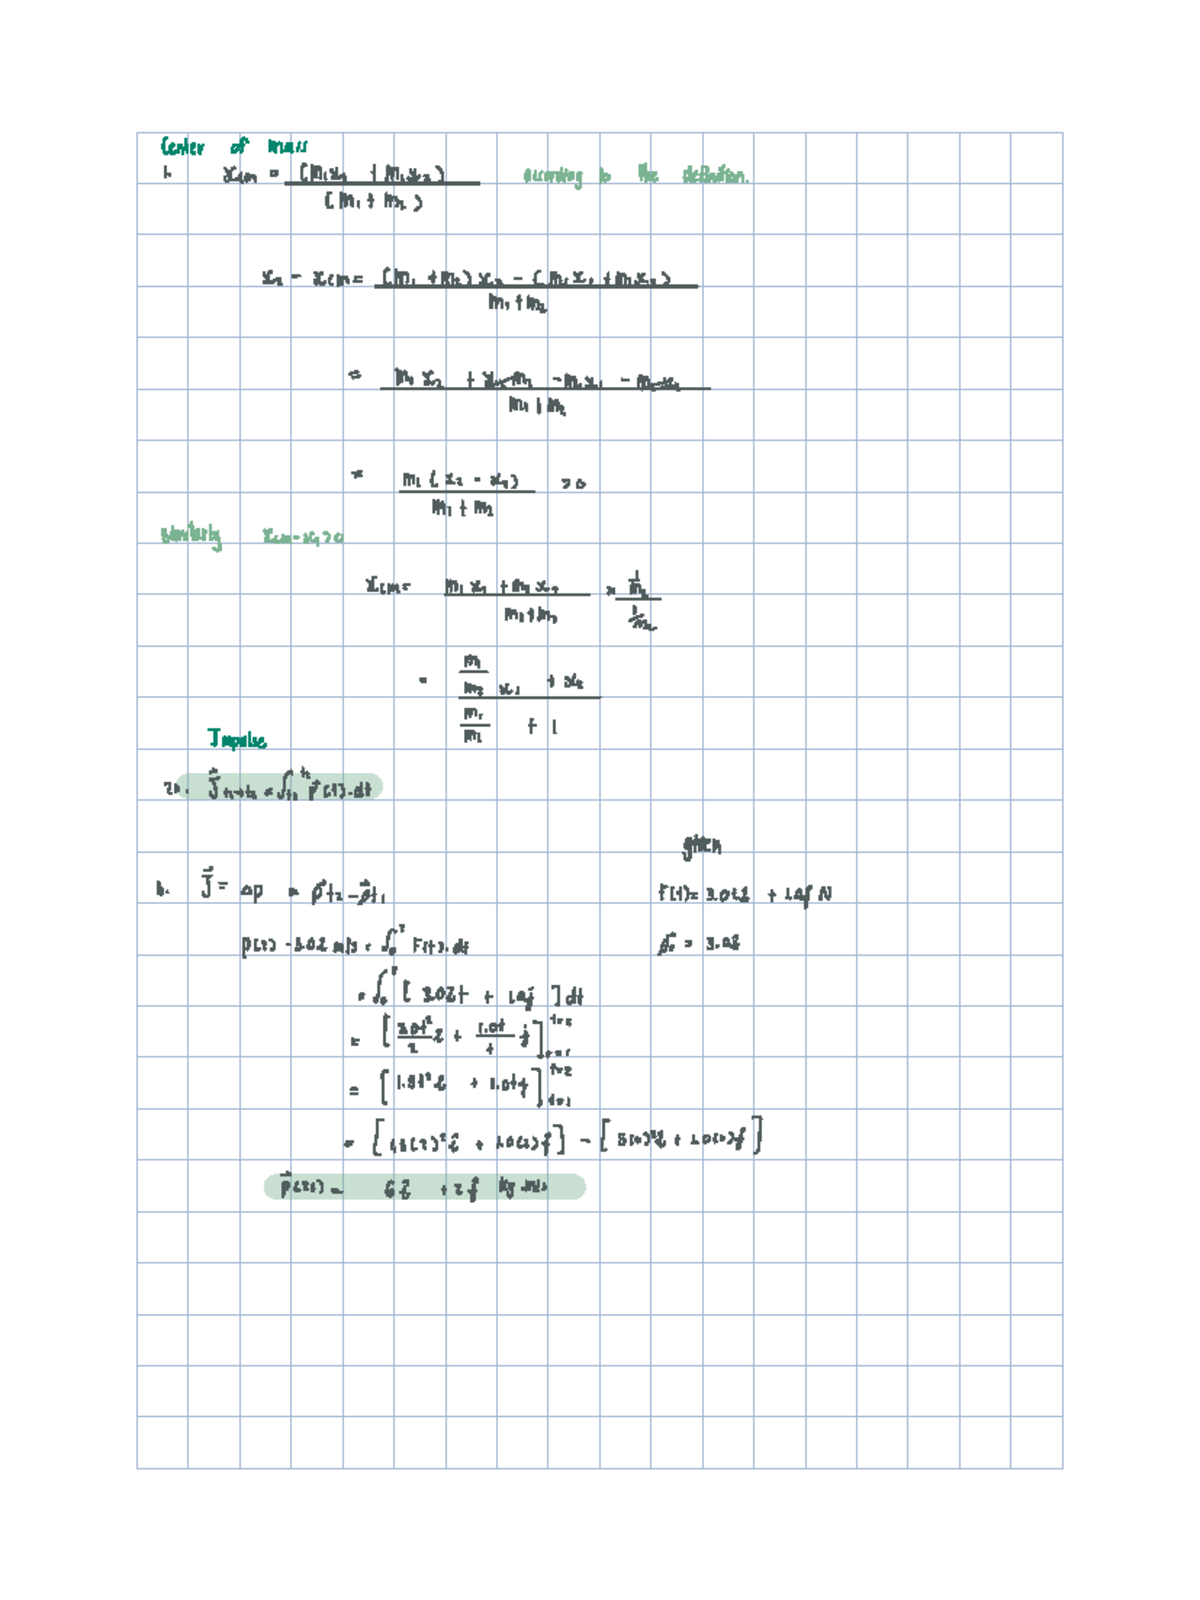 Center of mass
1. x_cm = (m₁x₁ + m₂x₂) / (m₁ + m₂) according to the definition.
x₂ - x_cm = ((m₁ + m₂) x₂ - (m₁x₁ + m₂x₂)) / (m₁ + m₂)
= (m₁x₂ + x₂m₂ - m₁x₁ - m₂x₂) / (m₁ + m₂)
= m₁(x₂ - x₁) / (m₁ + m₂) > 0
Similarly x_cm - x₁ > 0
x_cm = (m₁x₁ + m₂x₂) / (m₁ + m₂) × (1/m₂) / (1/m₂)
= (m₁/m₂ x₁ + x₂) / (m₁/m₂ + 1)
Impulse
2a. J⃗ t₁→t₂ = ∫_t₁^t₂ F⃗(t)·dt
given
b. J⃗ = Δp = p⃗t₂ - p⃗t₁
F(t) = 3.0t î + 1.0 ĵ N
p(2) - 3.0 î m/s = ∫₀² F(t)·dt
p⃗₀ = 3.0 î
= ∫₀² [3.0 î t + 1.0 ĵ] dt
= [3.0t²/2 î + 1.0t/1 ĵ]
= [1.5t² î + 1.0t ĵ]
= [1.5(2)² î + 1.0(2) ĵ] - [
= 6 î + 2 ĵ kg·m/s